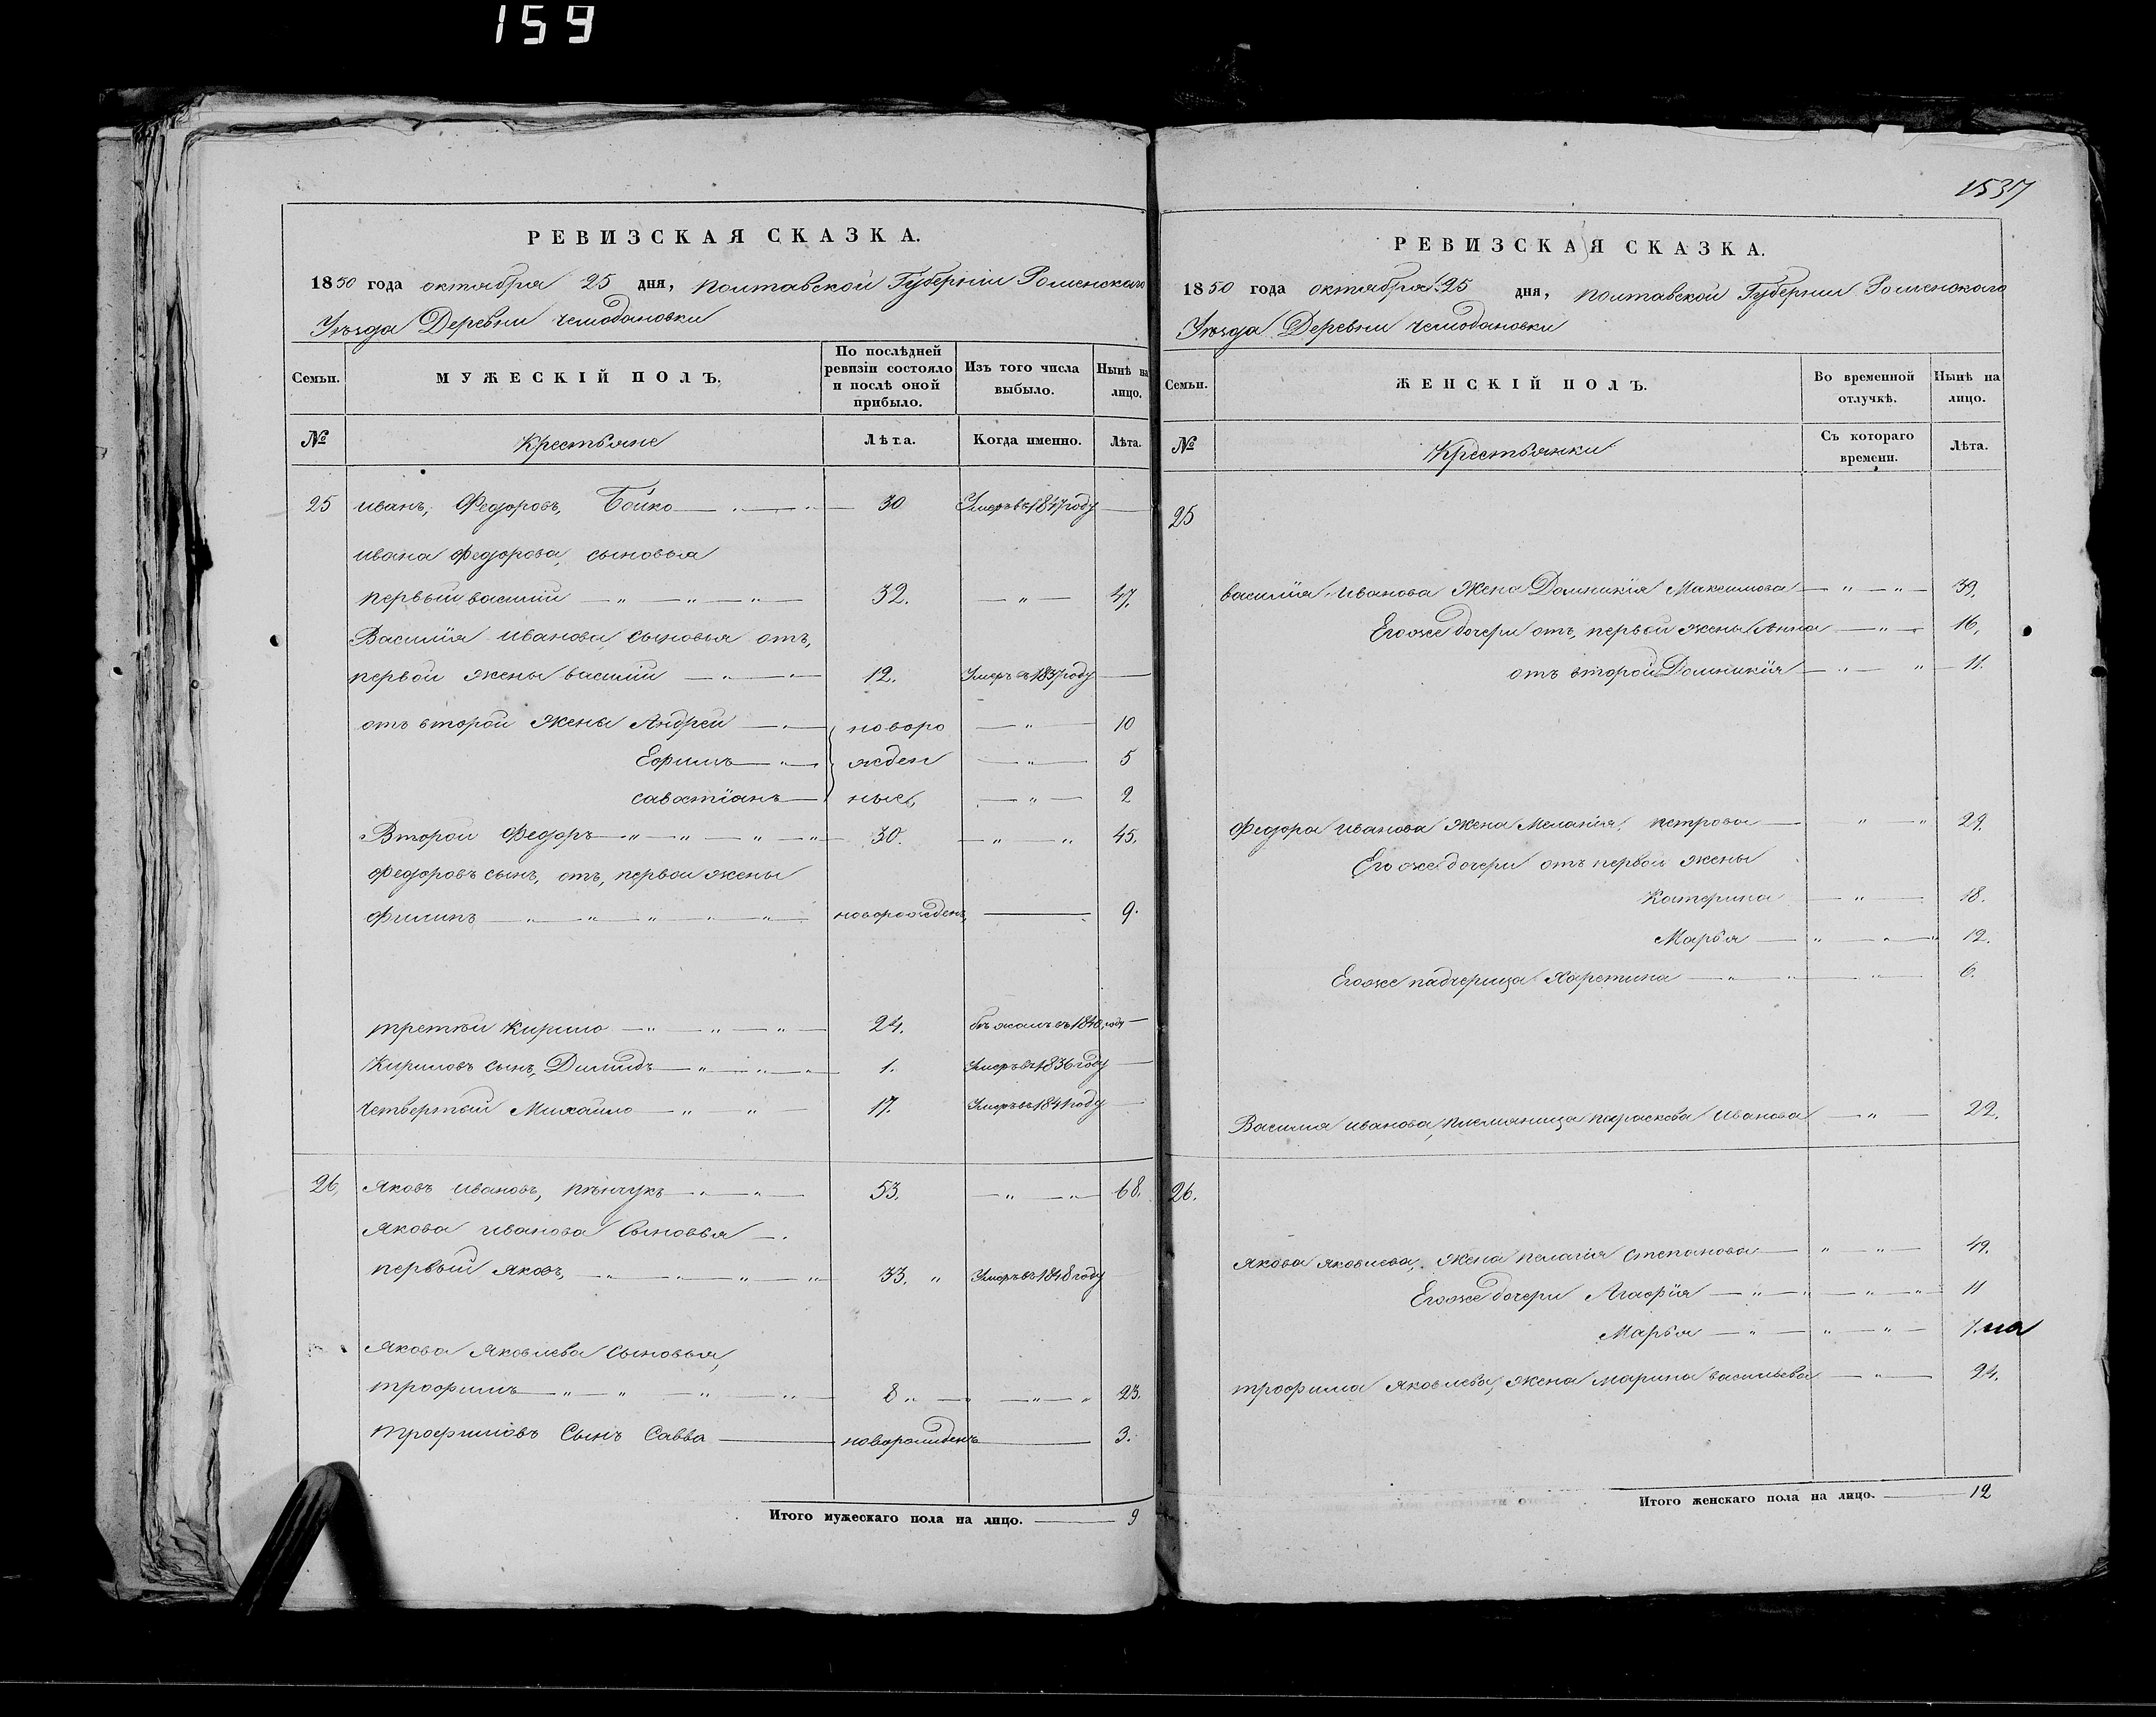 159
РЕВИЗСКАЯ СКАЗКА.
1850 года октября 25 дня, полтавской Губерніи Роменскаго
Уѣзда Деревни чемодановки
Семьи.
МУЖЕСКІЙ ПОЛЪ.
По послѣдней ревизіи состояло и послѣ оной прибыло.
Изъ того числа выбыло.
Нынѣ на лицо.
№
Крестьяне
Лѣта.
Когда именно.
Лѣта.
25 иванъ, Федоровъ, Бойко 30 Умеръ въ 1847 году
ивана Федорова, сыновья
первый василий 32. 47.
Василия иванова сыновья отъ,
первой жены василий 12. Умеръ в 1837 году
отъ второй жены Андрей новоро 10
Ефимъ жден 5
савастіанъ ные, 2
Второй Федоръ 30. 45.
Федоровъ сынъ, отъ, первой жены
Филипъ новорожденъ, 9.
третий Кирило 24. бѣжалъ въ 1840, году
Кириловъ сынъ, Димидъ 1. Умеръ въ 1836 году
Четвертый Михайло 17. Умеръ въ 1841 году
26, Яковъ ивановъ, 53. 68.
Якова иванова Сыновья
первый яковъ, 33. Умеръ въ 1848 году
Якова Яковлева Сыновья,
трофимъ 8 23.
трофимовъ Сынъ Савва новорожденъ 3.
Итого мужескаго пола на лицо. 9
1537
РЕВИЗСКАЯ СКАЗКА.
1850 года октября 25 дня, полтавской Губернии Роменскаго
Уѣзда Деревни чемодановки
Семьи.
ЖЕНСКІЙ ПОЛЪ.
Во временной отлучкѣ.
Нынѣ на лицо.
№
Крестьянки
Съ котораго времени.
Лѣта.
25
василия иванова Жена Домникія Максимова 39,
Егоже дочери отъ, первой жены Анна 16,
отъ второй Домникія 11.
Федора иванова жена Меланія, петрова 29.
Его же дочери отъ первой жены
Катерина 18.
Марья 12.
Егоже падчерица Харетина 6.
Василия иванова, племяница параскева Иванова 22.
26.
Якова яковлева, жена пелагія степанова 49.
Егоже дочери Агафія 11
Марья 7.
трофима яковлева, жена марина васильева 24.
Итого женскаго пола на лицо. 12